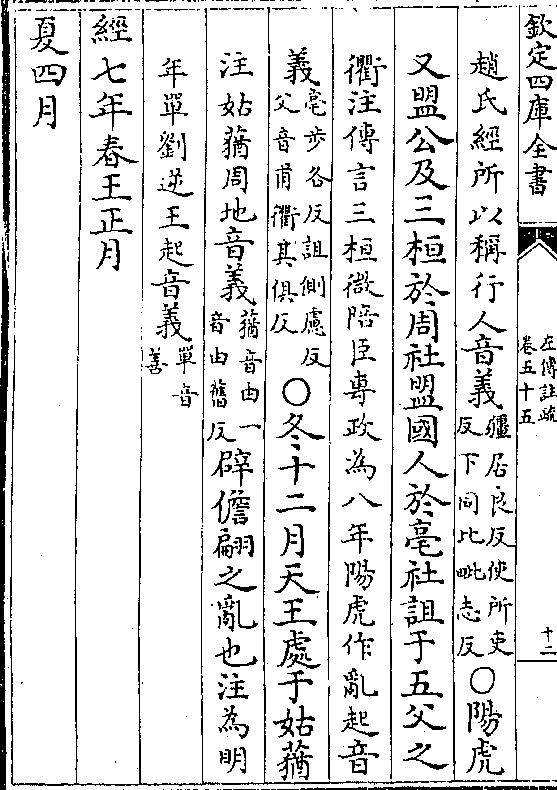 欽定四庫全書
左傳註疏
卷五十五
十二
趙氏經所以稱行人音義疆居良反使所吏反下同比毗志反○陽虎
又盟公及三桓於周社盟國人於亳社詛于五父之
衢注傳言三桓微陪臣專政為八年陽虎作亂起音
義亳步各反詛側慮反父音甫衢其俱反○冬十二月天王處于姑蕕
注姑蕕周地音義蕕音由一音由舊反辟儋翩之亂也注為明
年單劉逆王起音義單音善
經七年春王正月
夏四月